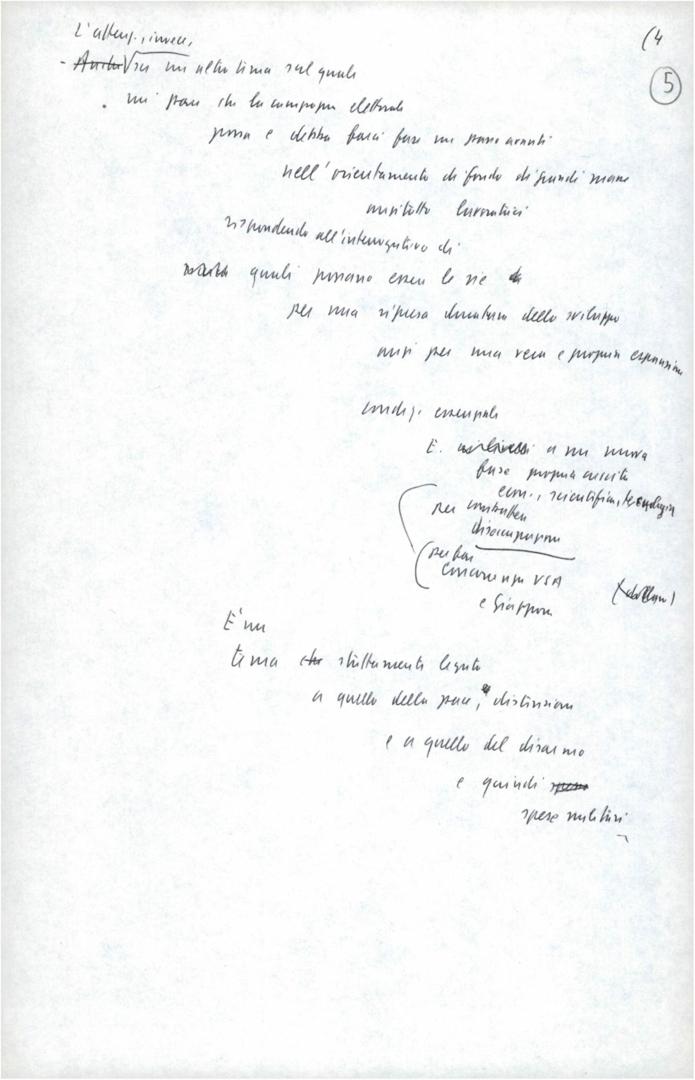 L'attenz., invece,
(4
5
- Anche su un altro tema sul quale
mi pare che la campagna elettorale
possa e debba farci fare un passo avanti
nell'orientamento di fondo di grandi masse
anzitutto lavoratrici
rispondendo all'interrogativo di
quali possano essere le vie
per una ripresa duratura dello sviluppo
anzi per una vera e propria espansione
condiz. essenziale
E. a una nuova
fase propria crescita
econ., scientifica, tecnologica
per combattere
disoccupazione
per
concorrenza USA
e Giappone
(dollaro)
È un
tema che strettamente legato
a quello della pace, distensione
e a quello del disarmo
e quindi spese
spese militari